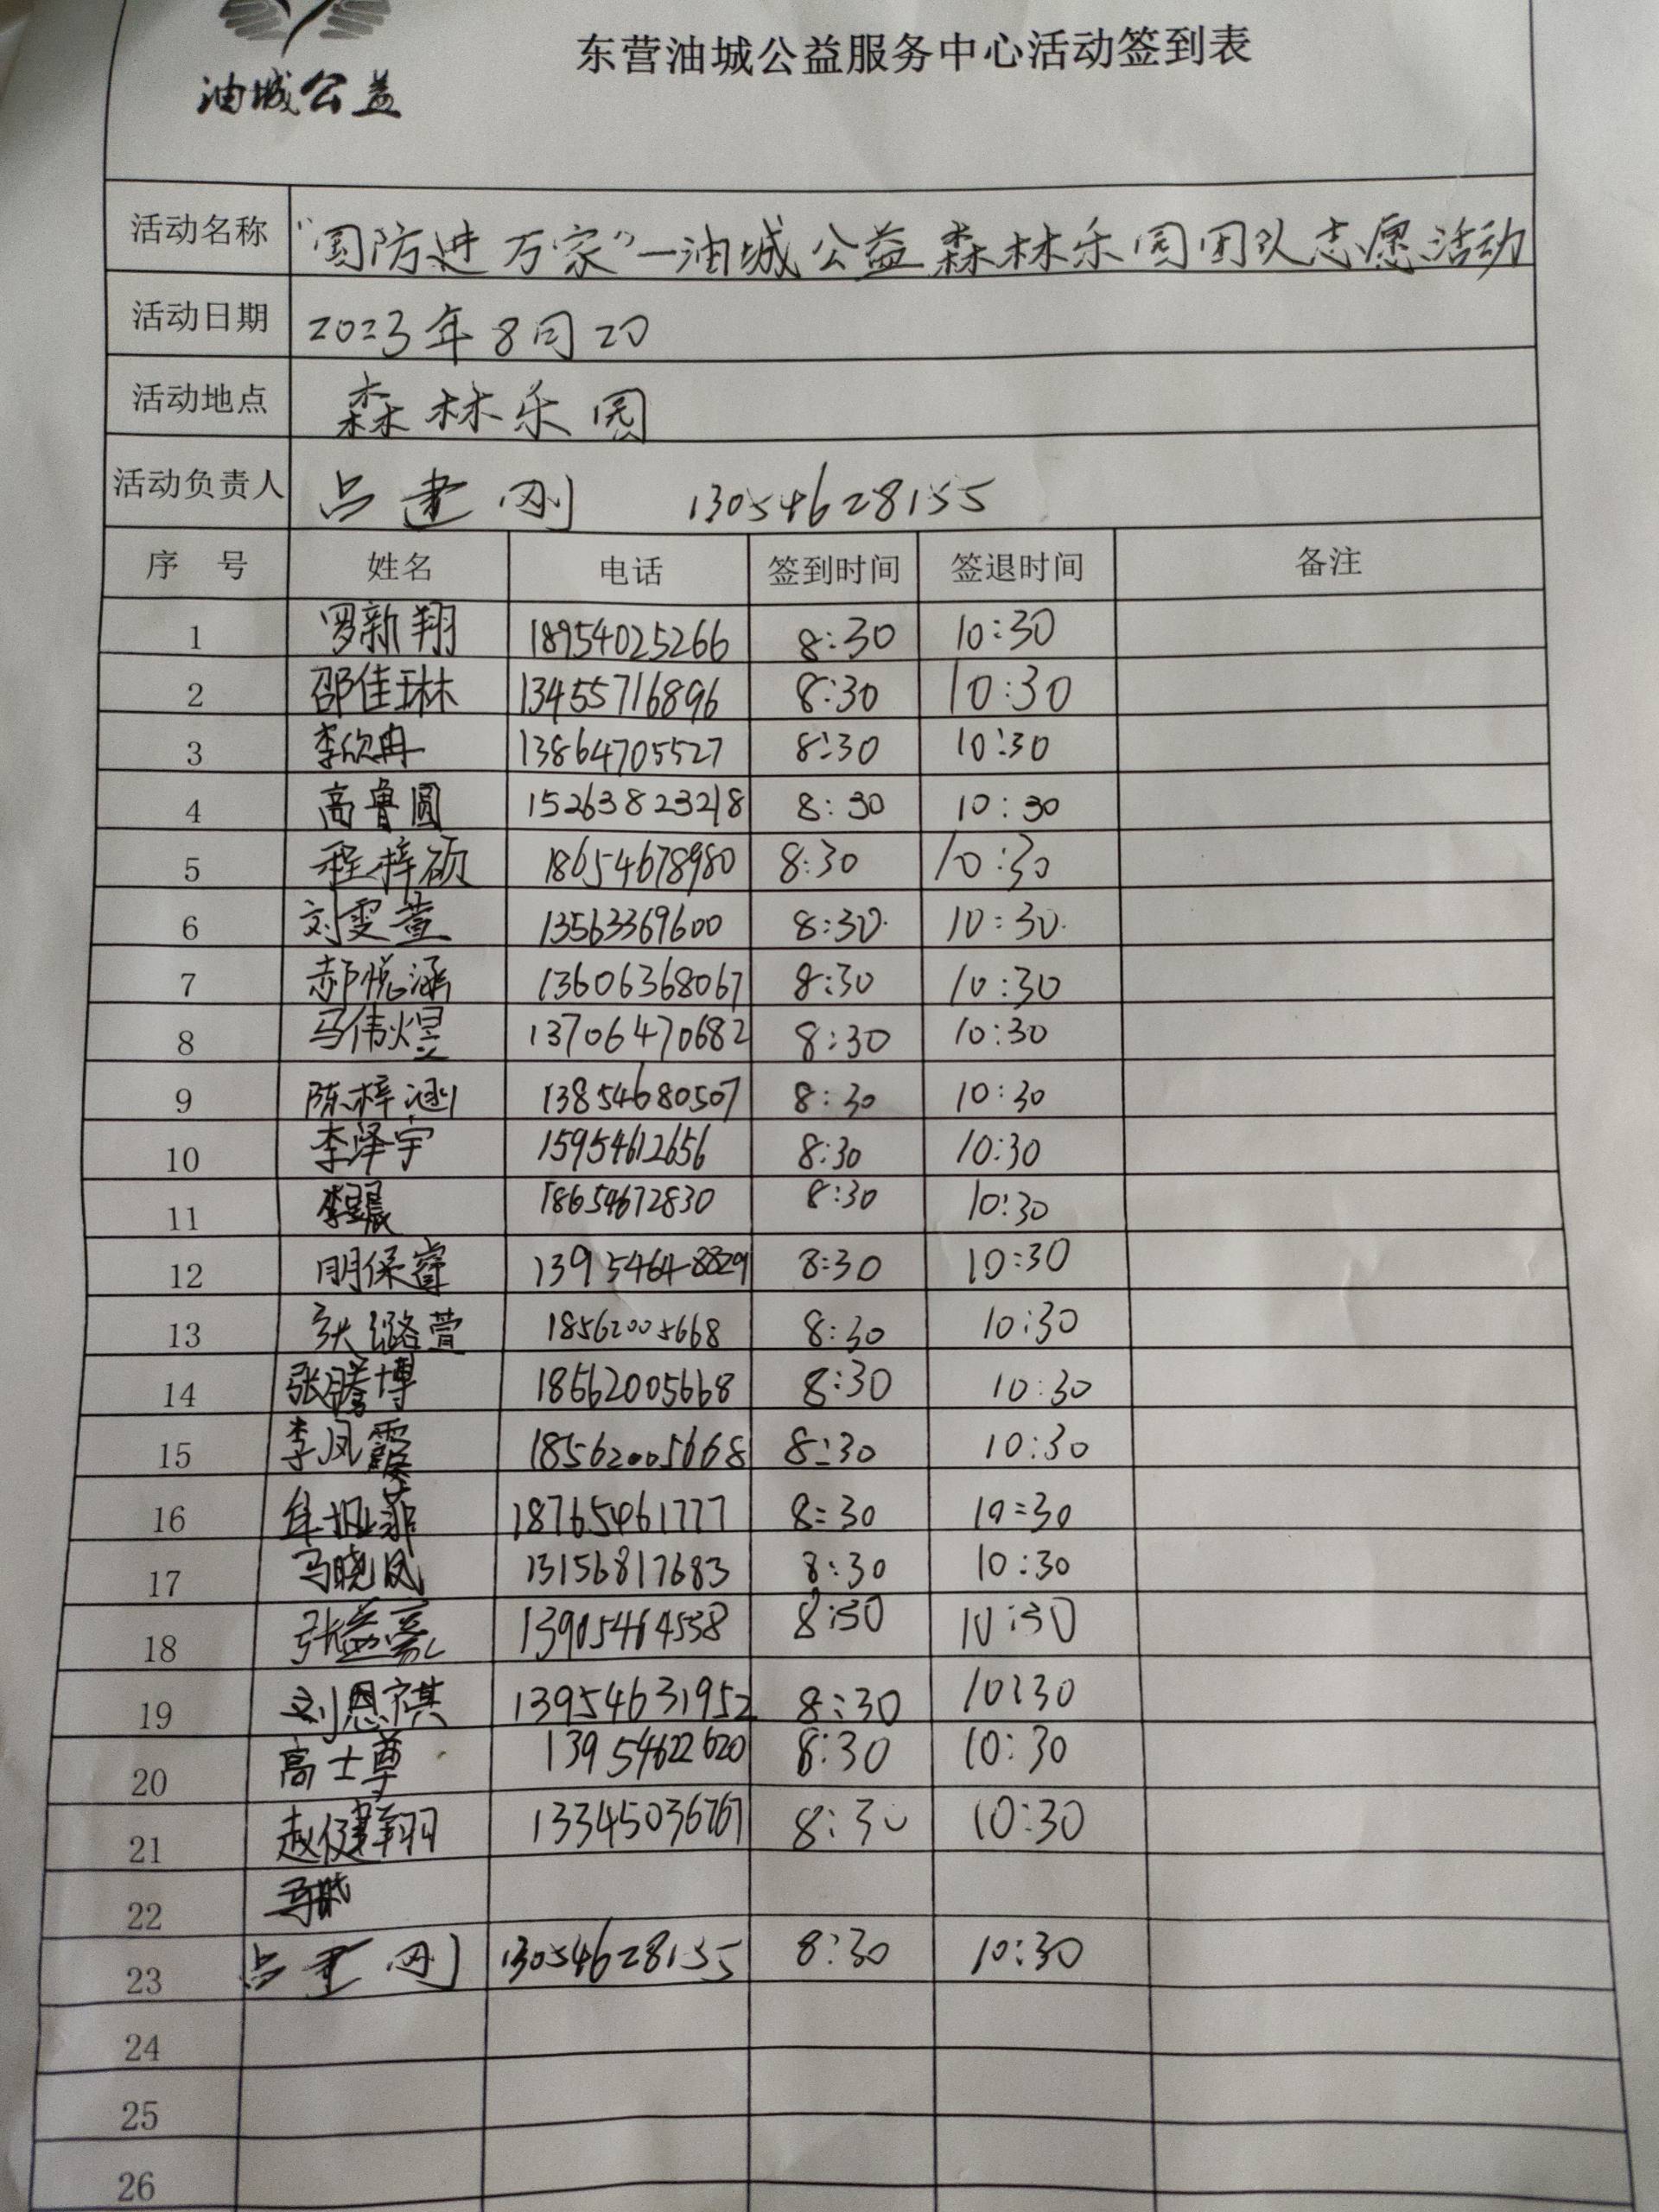 油城公益
东营油城公益服务中心活动签到表
活动名称 “国防进万家”—油城公益森林乐园团队志愿活动
活动日期 2023年8月20
活动地点 森林乐园
活动负责人 吕建刚 13054628155
序 号 姓名 电话 签到时间 签退时间 备注
1 罗新翔 18954025266 8:30 10:30
2 邵佳琳 13455716896 8:30 10:30
3 李欣冉 13864705527 8:30 10:30
4 高鲁圆 15263823218 8:30 10:30
5 程梓硕 18654678980 8:30 10:30
6 刘雯萱 13563369600 8:30 10:30
7 郝悦涵 13606368067 8:30 10:30
8 马伟煜 13706470682 8:30 10:30
9 陈梓涵 13854680507 8:30 10:30
10 李泽宇 15954612656 8:30 10:30
11 18654672830 8:30 10:30
12 明保睿 13954648829 8:30 10:30
13 张璐萱 18562005668 8:30 10:30
14 张腾博 18562005668 8:30 10:30
15 李凤霞 18562005668 8:30 10:30
16 18765461777 8:30 10:30
17 马晓凤 13156817683 8:30 10:30
18 张益豪 13905464538 8:30 10:30
19 刘恩祺 13954631952 8:30 10:30
20 高士尊 13954622620 8:30 10:30
21 赵健翔 13345036767 8:30 10:30
22
23 吕建刚 13054628155 8:30 10:30
24
25
26